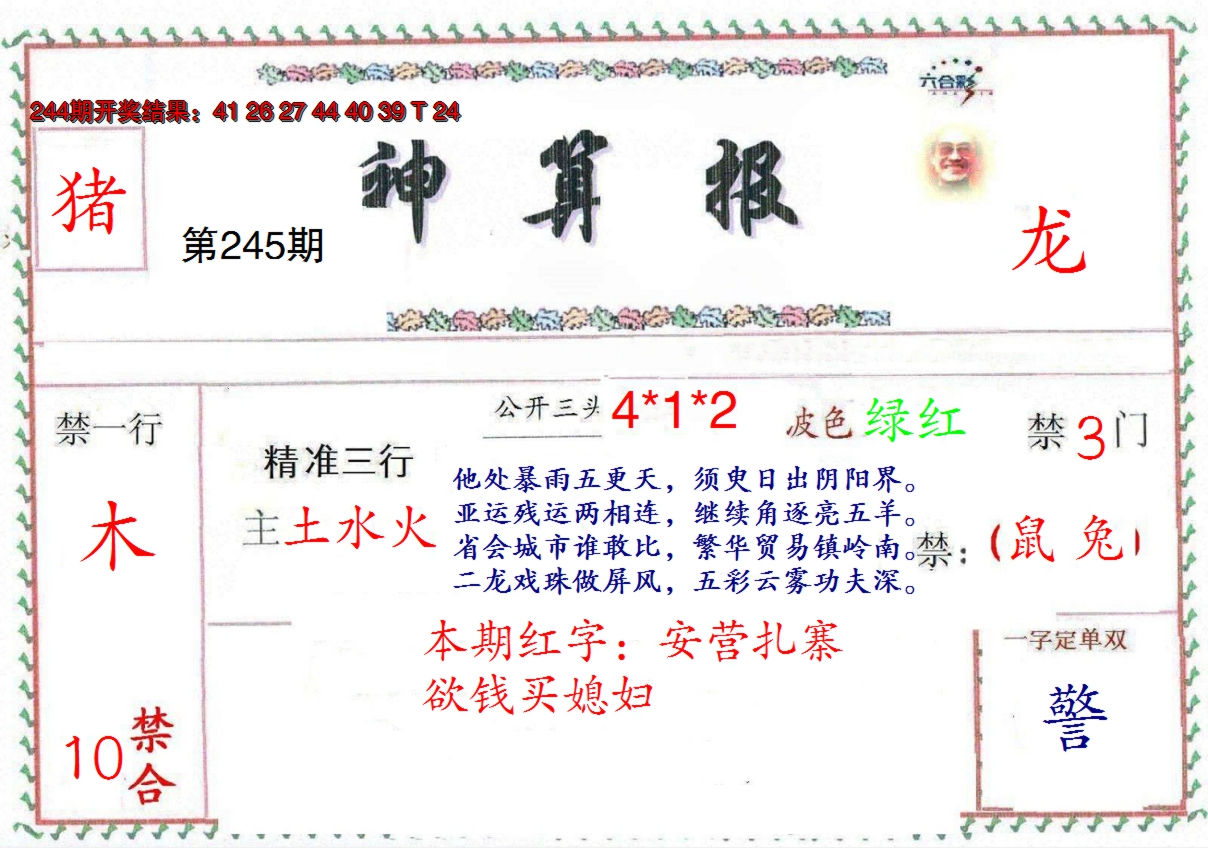 六合彩
244期开奖结果：41 26 27 44 40 39 T 24
神算报
猪
第245期
龙
公开三头 4*1*2
波色 绿红
禁一行
禁3门
精准三行
他处暴雨五更天，须臾日出阴阳界。
主土水火
亚运残运两相连，继续角逐亮五羊。
木
省会城市谁敢比，繁华贸易镇岭南。
禁：（鼠 兔）
二龙戏珠做屏风，五彩云雾功夫深。
本期红字：安营扎寨
欲钱买媳妇
一字定单双
警
10禁合